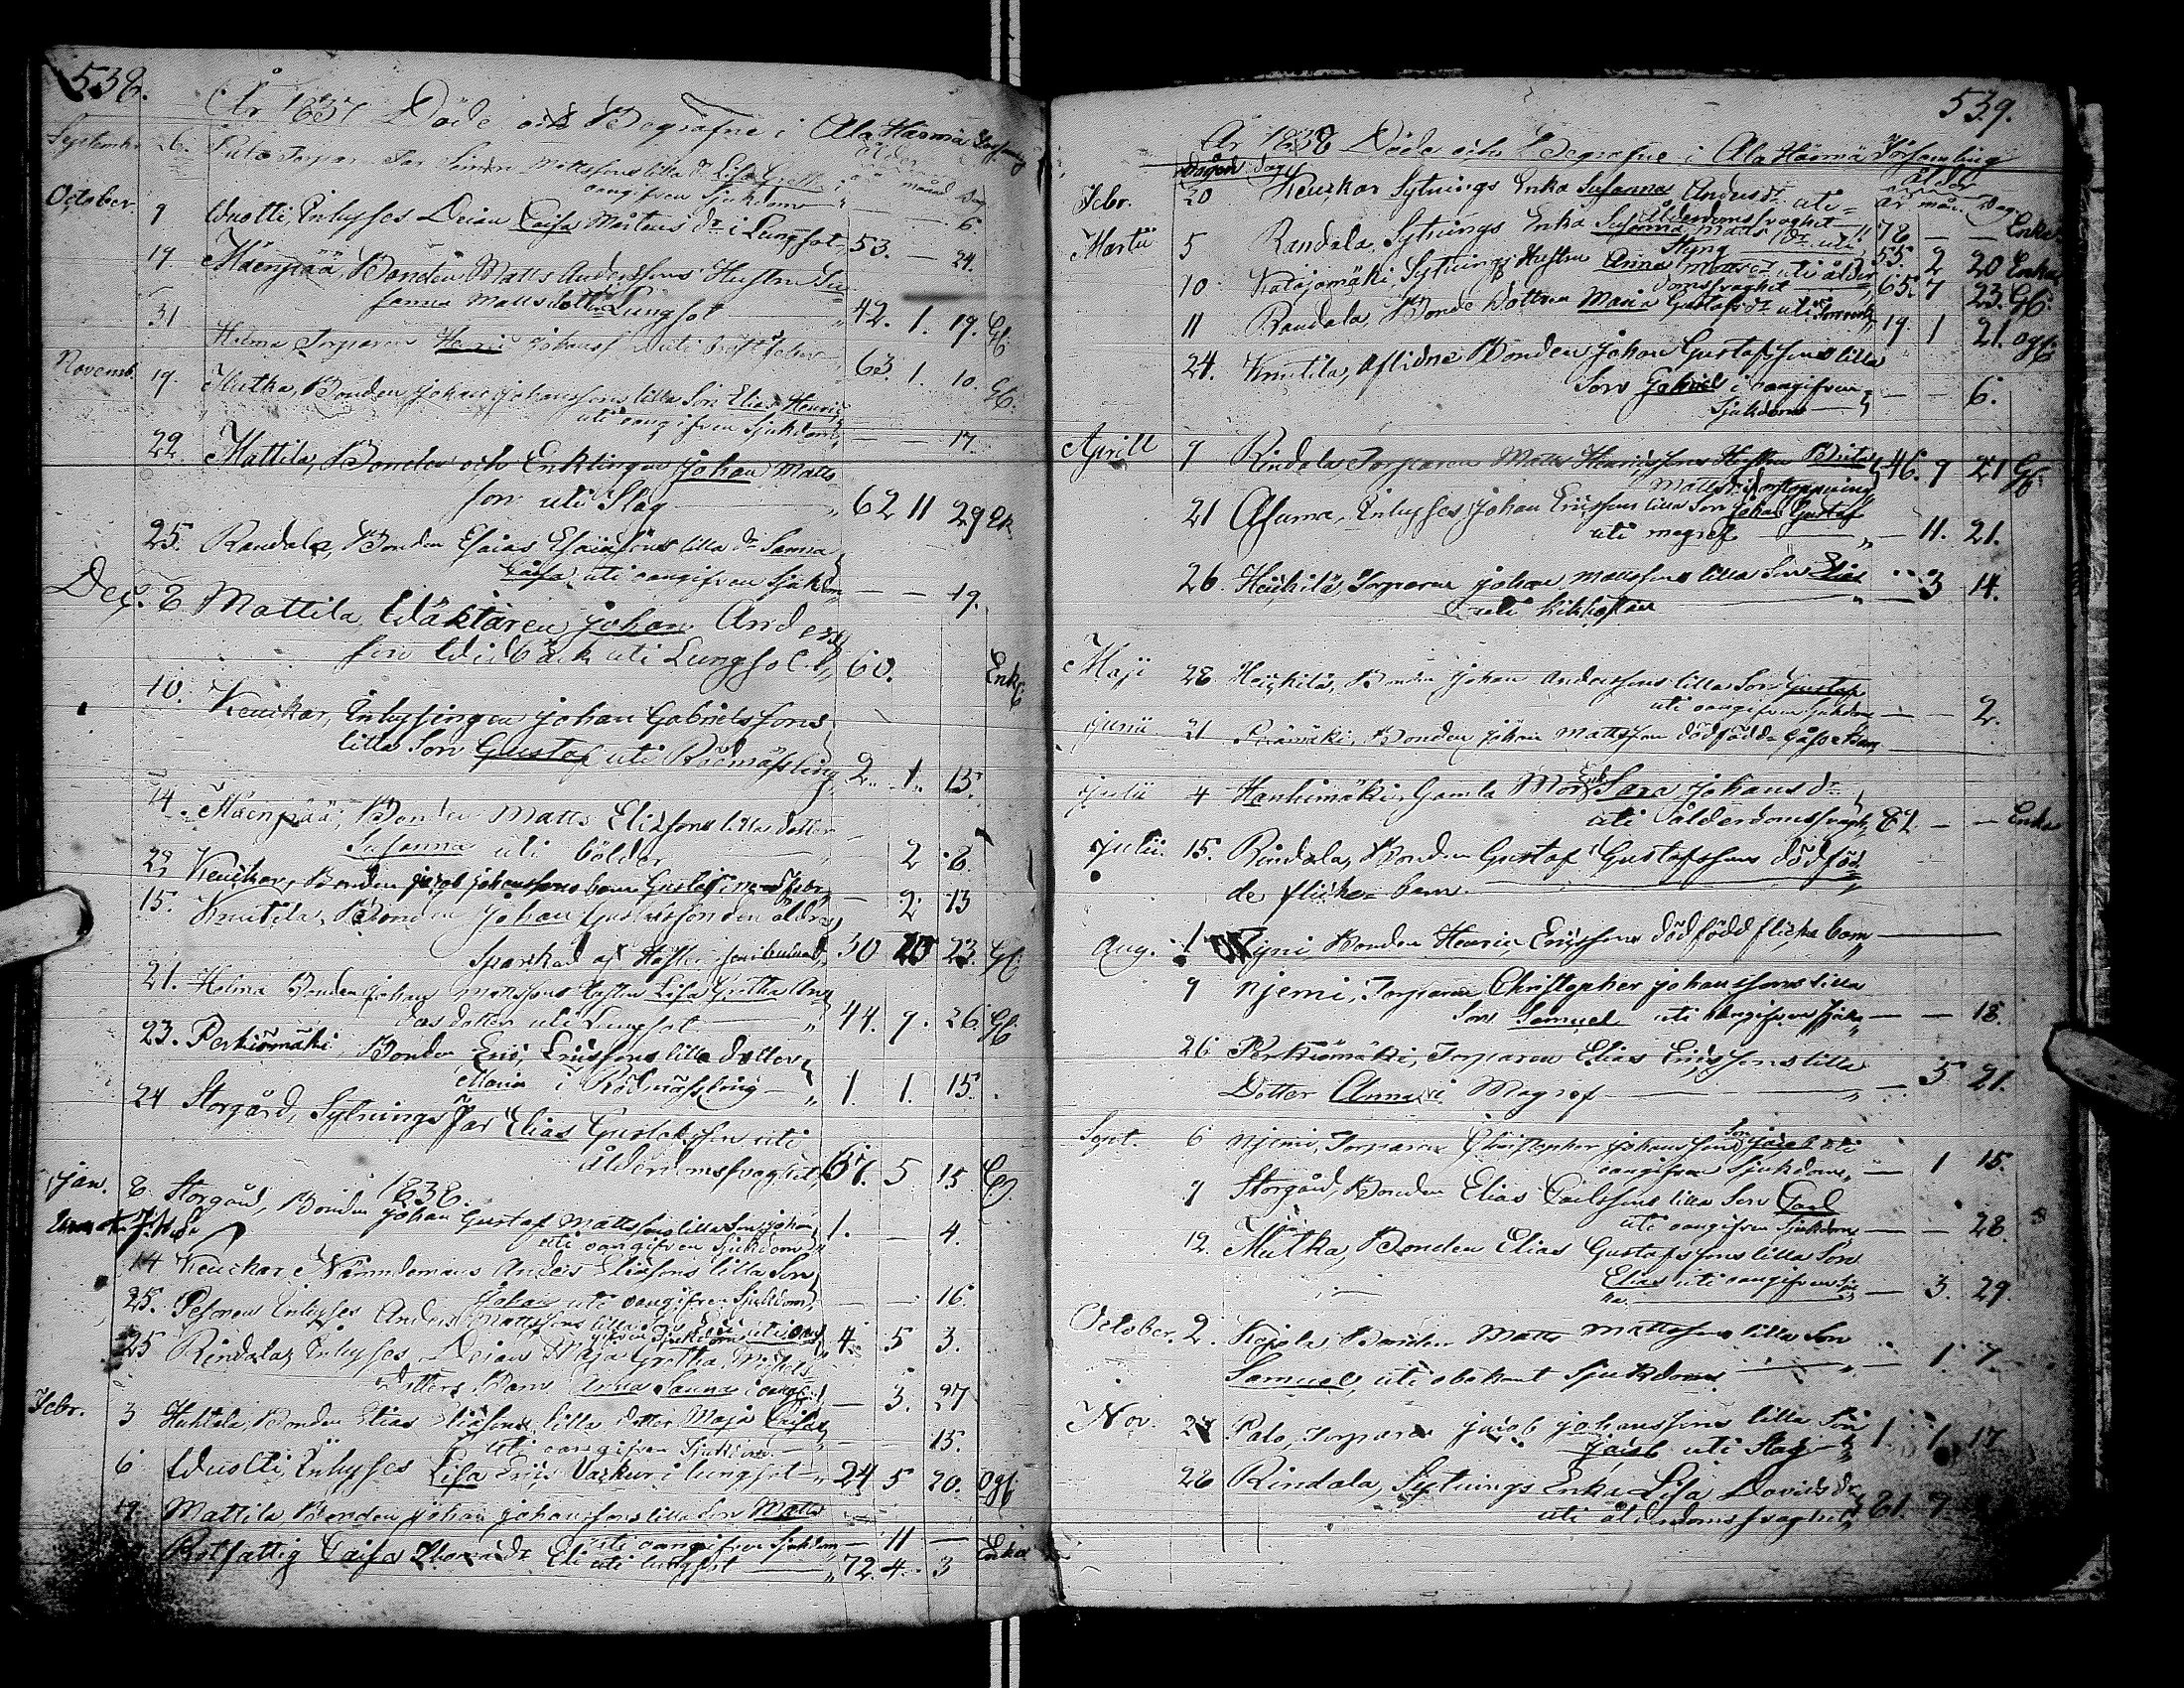 538.
År 1837 Döde och Begrafne i Ala Härmä
ålder
år månad dag
September 26. Torpare Simon Mattssons lilla dr Lisa Gretha i
oangifven Sjukdom — — 6.
October. 9 Wuolti, Inhyses Deian Caisa Mårtens dr i Lungsot 53. — 24.
19. Mäenpää, Bonden Matts Anderssons Hustru Su-
sanna Mattsdotter Lungsot 42. 1. 19. Gf.
31 Holma Torparen Henric Johansson uti 63. 1. 10. Gf.
Novemb. 19. Hutka, Bonden Johan Johanssons lilla Son Elias Henric
uti oangifven Sjukdom — — 17.
22. Mattila, Bonden och Enklingen Johan Matts
son uti Slag 62 11 29 Ek
25. Randala, Bonden Esaias Esaiasons lilla dr Sanna
Caisa uti oangifven Sjukdom — — 19.
Dec. 8 Mattila Wäktaren Johan Anders
son Widbäck uti Lungsot 60. Enk
10. Keuckar, Inhysingen Johan Gabrielssons
lilla Son Gustaf uti Rödmässling 2. 1. 13.
14. Mäenpää, Bonden Matts Eliæsons lilla dotter
Susanna uti bölder 2 8.
29 Keuckar, Bonden Jacob Johanssons barn Gustaf — 2 13
15. Knutila Bonden Johan Gustafsson den äldre
Sparkad af Häst 30 10 23. Gf.
21. Holma Bonden Johan Mattssons Hustru Lisa Gretha An
ders dotter uti Lungsot 44. 9. 26. Gf
23. Perkiömäki, Bonden Eric Ericssons lilla dotter
Maria i Rödmässling 1. 1. 15.
24 Storgård, Sytnings Far Elias Gustafsson uti
Ålderdomssvaghet 67. 5 15
1838.
Jan. 8 Storgård, Bonden Johan Gustaf Mattssons lilla Son Johan
uti oangifven Sjukdom 1. — 4.
14 Keuckar Nämndemans Anders Eliæsons lilla Son
Johan uti oangifven Sjukdom — — 16.
25. Pesonen Inhyses Anders Mattssons lilla
4. 5 3.
25 Rindala, Inhyses Deian Maja Gretha Michels
Dotters Barn Anna Sanna i oangif. — 3. 27
Febr. 3 Huhtala, Bonden Elias Eliæsons lilla dotter Maja Caisa
uti oangifven Sjukdom — — 15.
6 Wuolti Inhyses Lisa Erics Vaskuri lungsot 24 5 20. Ogf
19 Mattila Bonden Johan Johanssons lilla Son Matts
uti oangifven Sjukdom — 11 —
Rotfattig Caisa Thomasdr Eli uti lungsot 72. 4. 3 Enka
539.
År 1838 Döde och Begrafne i Ala Härmä Församling
ålder
år mån. Dag.
Febr. 20 Keuckar Sytnings Enka Susanna Andersdr uti
ålderdomssvaghet 78 — — Enka
Martii 5 Randala, Sytnings Enka Susanna Matts dr uti
Styng 55 2 20 Enka
10 Katajamäki, Sytnings Hustru Anna Mattsdr uti ålder
domssvaghet 65. 7 23. Gf.
11 Randala, Bonde Dottren Maria Gustafsdr uti 19. 1 21. ogf
24. Knutila, Aflidne Bonden Johan Gustafssons lilla
Son Gabriel i oangifven
Sjukdom — — 6.
Aprill 9 Rindala Torparen Matts Henricssons Hustru Brita
Mattsdr i förstoppning 46. 9 21 Gf.
21 Asuma, Inhyses Johan Ericssons lilla Son Johan Gustaf
uti magref — 11. 21.
26. Heickilä, Torparen Johan Mattssons lilla Son Elias
uti kikhostan — 3 14.
Maji 28 Heickilä, Bonden Johan Anderssons lilla Son Gustaf
uti oangifven Sjukdom — — 2.
Junii 21 Bonden Johan Mattsson dödfödd Gosse barn
Julii 4 Hanhimäki, Gamla Mor Enk Sara Johans dr
uti Ålderdomssvagh. 82 — — Enka
Julii. 15. Rindala, Bonden Gustaf Gustafssons dödföd
de flicke barn
Aug. 1 Bonden Henric Ericssons dödfödd flicka barn
9 Njemi, Torparen Christopher Johanssons lilla
Son Samuel uti oangifven Sjuk — — 18.
26 Perkiömäki, Torparen Elias Ericssons lilla
Dotter Anna i Magref — 5 21.
Sept. 6 Njemi, Torparen Christopher Johanssons Son Jacob uti
oangifven Sjukdom — 1 15.
9 Storgård, Bonden Elias Carlssons lilla Son Carl
uti oangifven Sjukdom — — 28.
12. Hutka, Bonden Elias Gustafssons lilla Son
Elias uti oangifven Sju
ka. — 3. 29.
October. 2. Kojola Bonden Matts Mattssons lilla Son
Samuel, uti obekant Sjukdom — 1. 7.
Nov. 24 Palo, Torparen Jacob Johanssons lilla Son
Jacob uti Slag 1. 1 17
28 Rindala, Sytnings Enka Lisa Davidsdr
uti ålderdomssvaghet 81. 9.